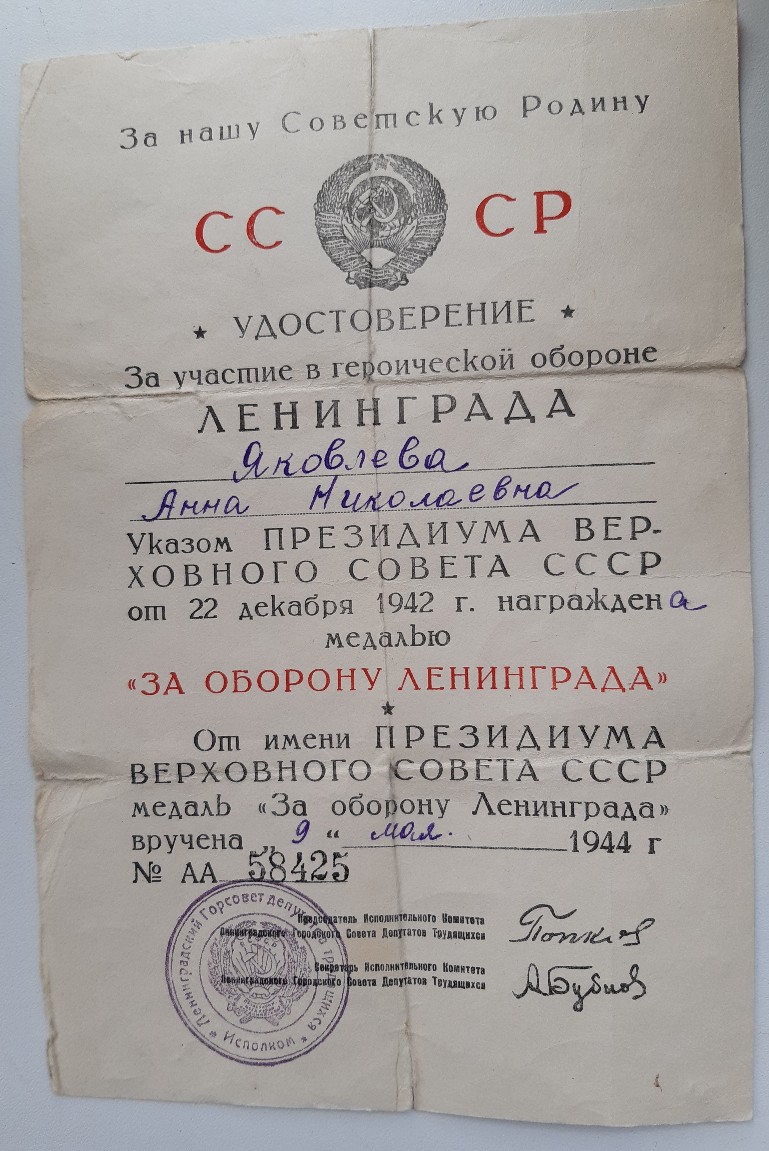 За нашу Советскую Родину
СС СР
★ УДОСТОВЕРЕНИЕ ★
За участие в героической обороне
ЛЕНИНГРАДА
Яковлева
Анна Николаевна
Указом ПРЕЗИДИУМА ВЕР-
ХОВНОГО СОВЕТА СССР
от 22 декабря 1942 г. награждена
медалью
«ЗА ОБОРОНУ ЛЕНИНГРАДА»
★
От имени ПРЕЗИДИУМА
ВЕРХОВНОГО СОВЕТА СССР
медаль «За оборону Ленинграда»
вручена „ 9 “ мая. 1944 г
№ АА 58425
Председатель Исполнительного Комитета
Ленинградского Городского Совета Депутатов Трудящихся
Попков
Секретарь Исполнительного Комитета
Ленинградского Городского Совета Депутатов Трудящихся
А Бубнов
Ленинградский Горсовет депутатов трудящихся
★ Исполком ★